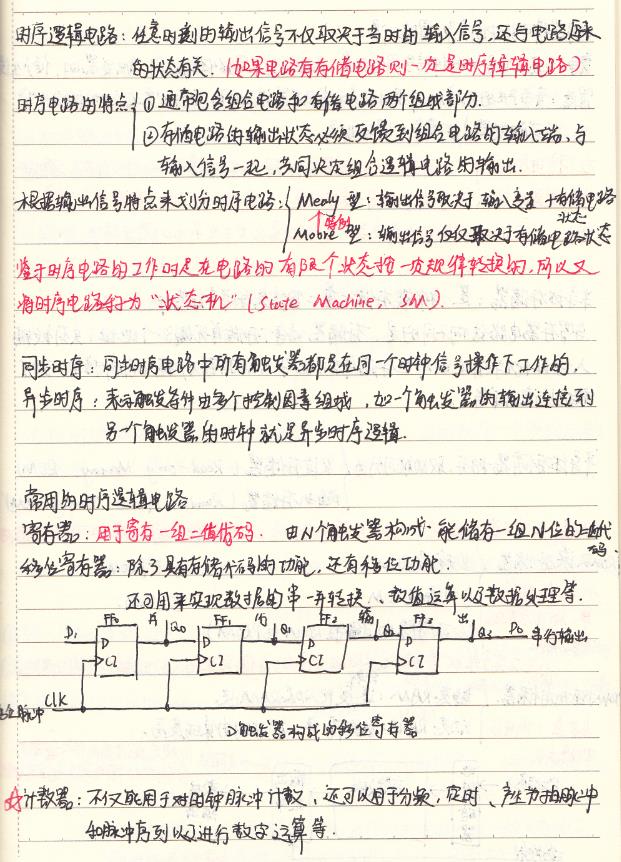 时序逻辑电路：任意时刻的输出信号不仅取决于当时的输入信号，还与电路原来
的状态有关.（如果电路有存储电路则一定是时序逻辑电路）
时序电路的特点 ① 通常包含组合电路和存储电路两个组成部分.
② 存储电路的输出状态必须反馈到组合电路的输入端，与
输入信号一起，共同决定组合逻辑电路的输出.
根据输出信号特点来划分时序电路： Mealy 型：输出信号取决于输入变量+存储电路
状态
特例
Moore 型：输出信号仅仅取决于存储电路状态
鉴于时序电路的工作时是在电路的有限个状态按一定规律转换的，所以又
将时序电路称为“状态机”（State Machine, SM）.
同步时序：同步时序电路中所有触发器都是在同一个时钟信号操作下工作的，
异步时序：表示触发条件由多个控制因素组成，如一个触发器的输出连接到
另一个触发器的时钟就是异步时序逻辑.
常用的时序逻辑电路
寄存器：用于寄存一组二值代码. 由N个触发器构成 能储存一组N位的二值代
码.
移位寄存器：除了具有存储代码的功能，还有移位功能
还可用来实现数据的串-并转换、数值运算以及数据处理等.
FF0 并 FF1 行 FF2 输 FF3 出
D1 D Q0 D Q1 D Q2 D Q3 D0 串行输出
C1 C1 C1 C1
CLK
移位脉冲
D触发器构成的移位寄存器
计数器：不仅能用于对时钟脉冲计数、还可以用于分频，定时、产生节拍脉冲
和脉冲序列以及进行数字运算等.